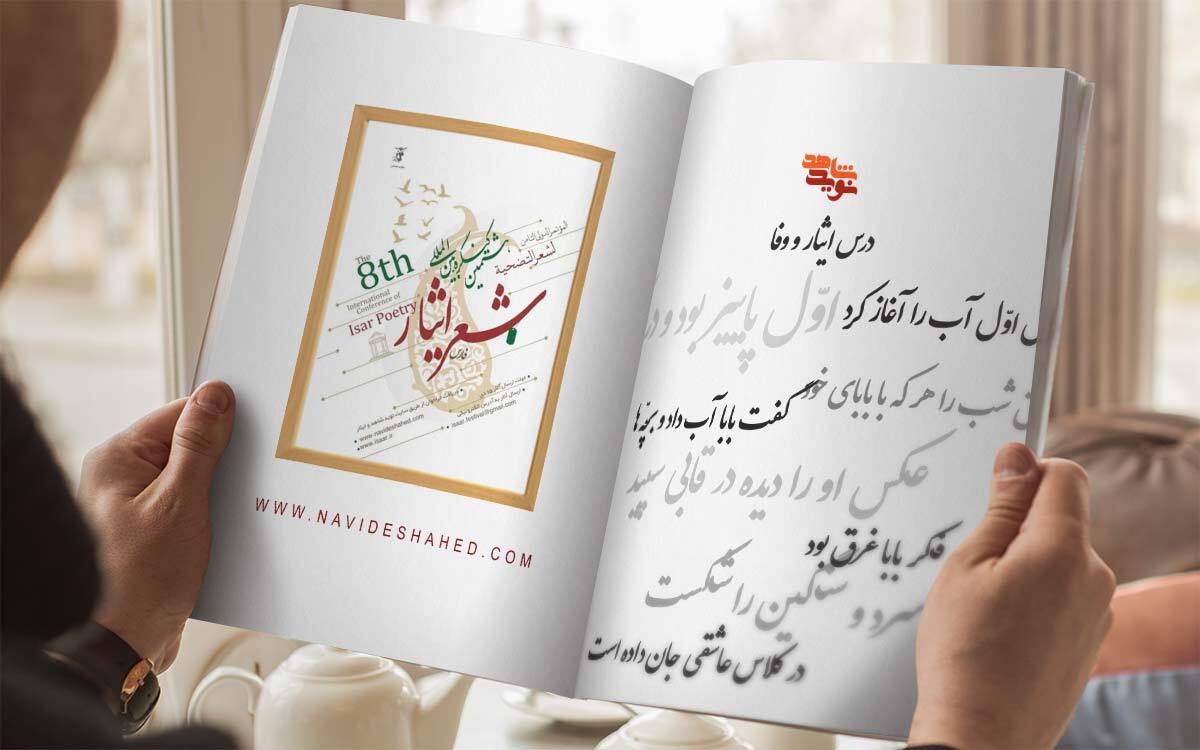 The
8th
International
Conference of
Isar Poetry
هشتمین کنگره بین المللی
المؤتمر الدولی الثامن
لشعر التضحیة
شعر ایثار
فارس
مهلت ارسال آثار: ۳۰ دی
ارسال آثار به آدرس الکترونیکی
isaar.festival@gmail.com
www.navideshahed.com
www.isaar.ir
WWW.NAVIDESHAHED.COM
نوید شاهد
درس ایثار و وفا
اول آب را آغاز کرد
اوّل پاییز بود و در
شب را هر که با بابای خود
گفت بابا آب داد و بچّه ها
عکس او را دیده در قابی سپید
فکر بابا غرق بود
سرد و سنگین را شکست
در کلاس عاشقی جان داده است